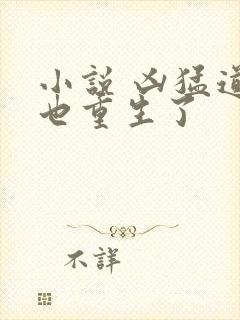 小說 凶猛道
也重生了
不詳